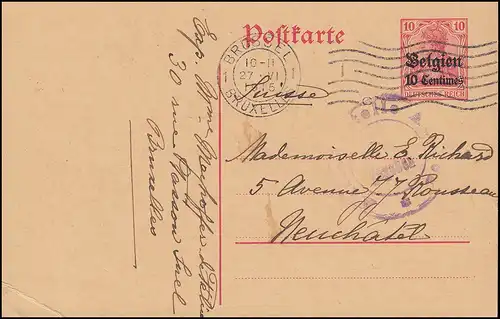 Postkarte
10 10
Belgien
10 Centimes
DEUTSCHES REICH
BRÜSSEL
10-11
27 VI
BRUXELLES
Suisse
Mademoiselle E. Richard
5 Avenue J.J. Rousseau
Neuchatel
Exp.
30 rue
Bruxelles